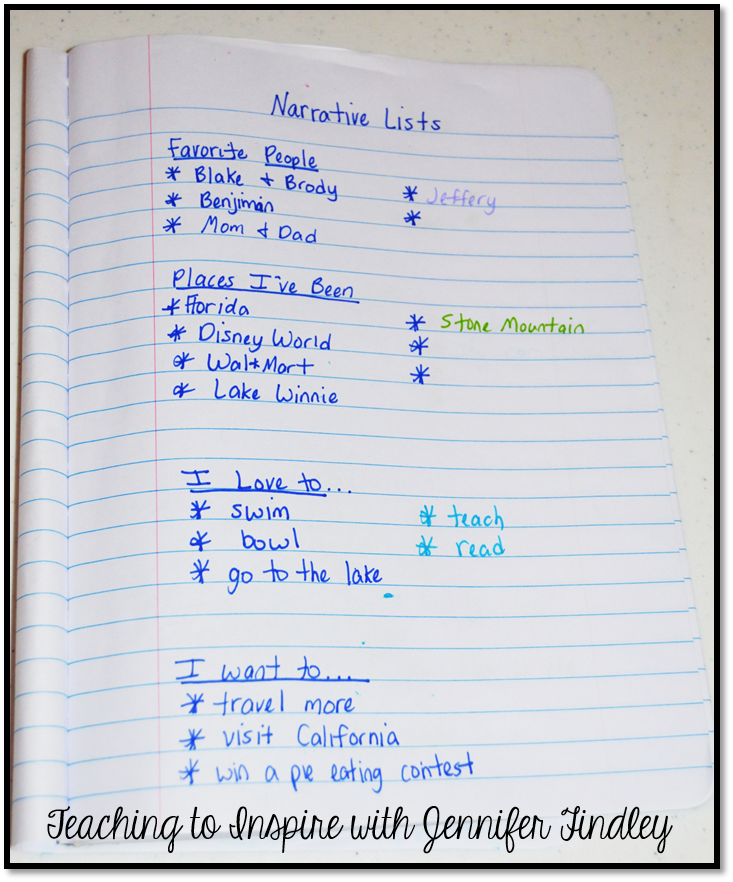 Narrative Lists
Favorite People
* Blake + Brody
* Benjimin
* Mom + Dad
* Jeffery
*
Places I've Been
* Florida
* Disney World
* Wal*Mart
* Lake Winnie
* Stone Mountain
*
*
I Love to...
* swim
* bowl
* go to the lake
* teach
* read
I want to....
* travel more
* visit California
* win a pie eating contest
Teaching to Inspire with Jennifer Findley